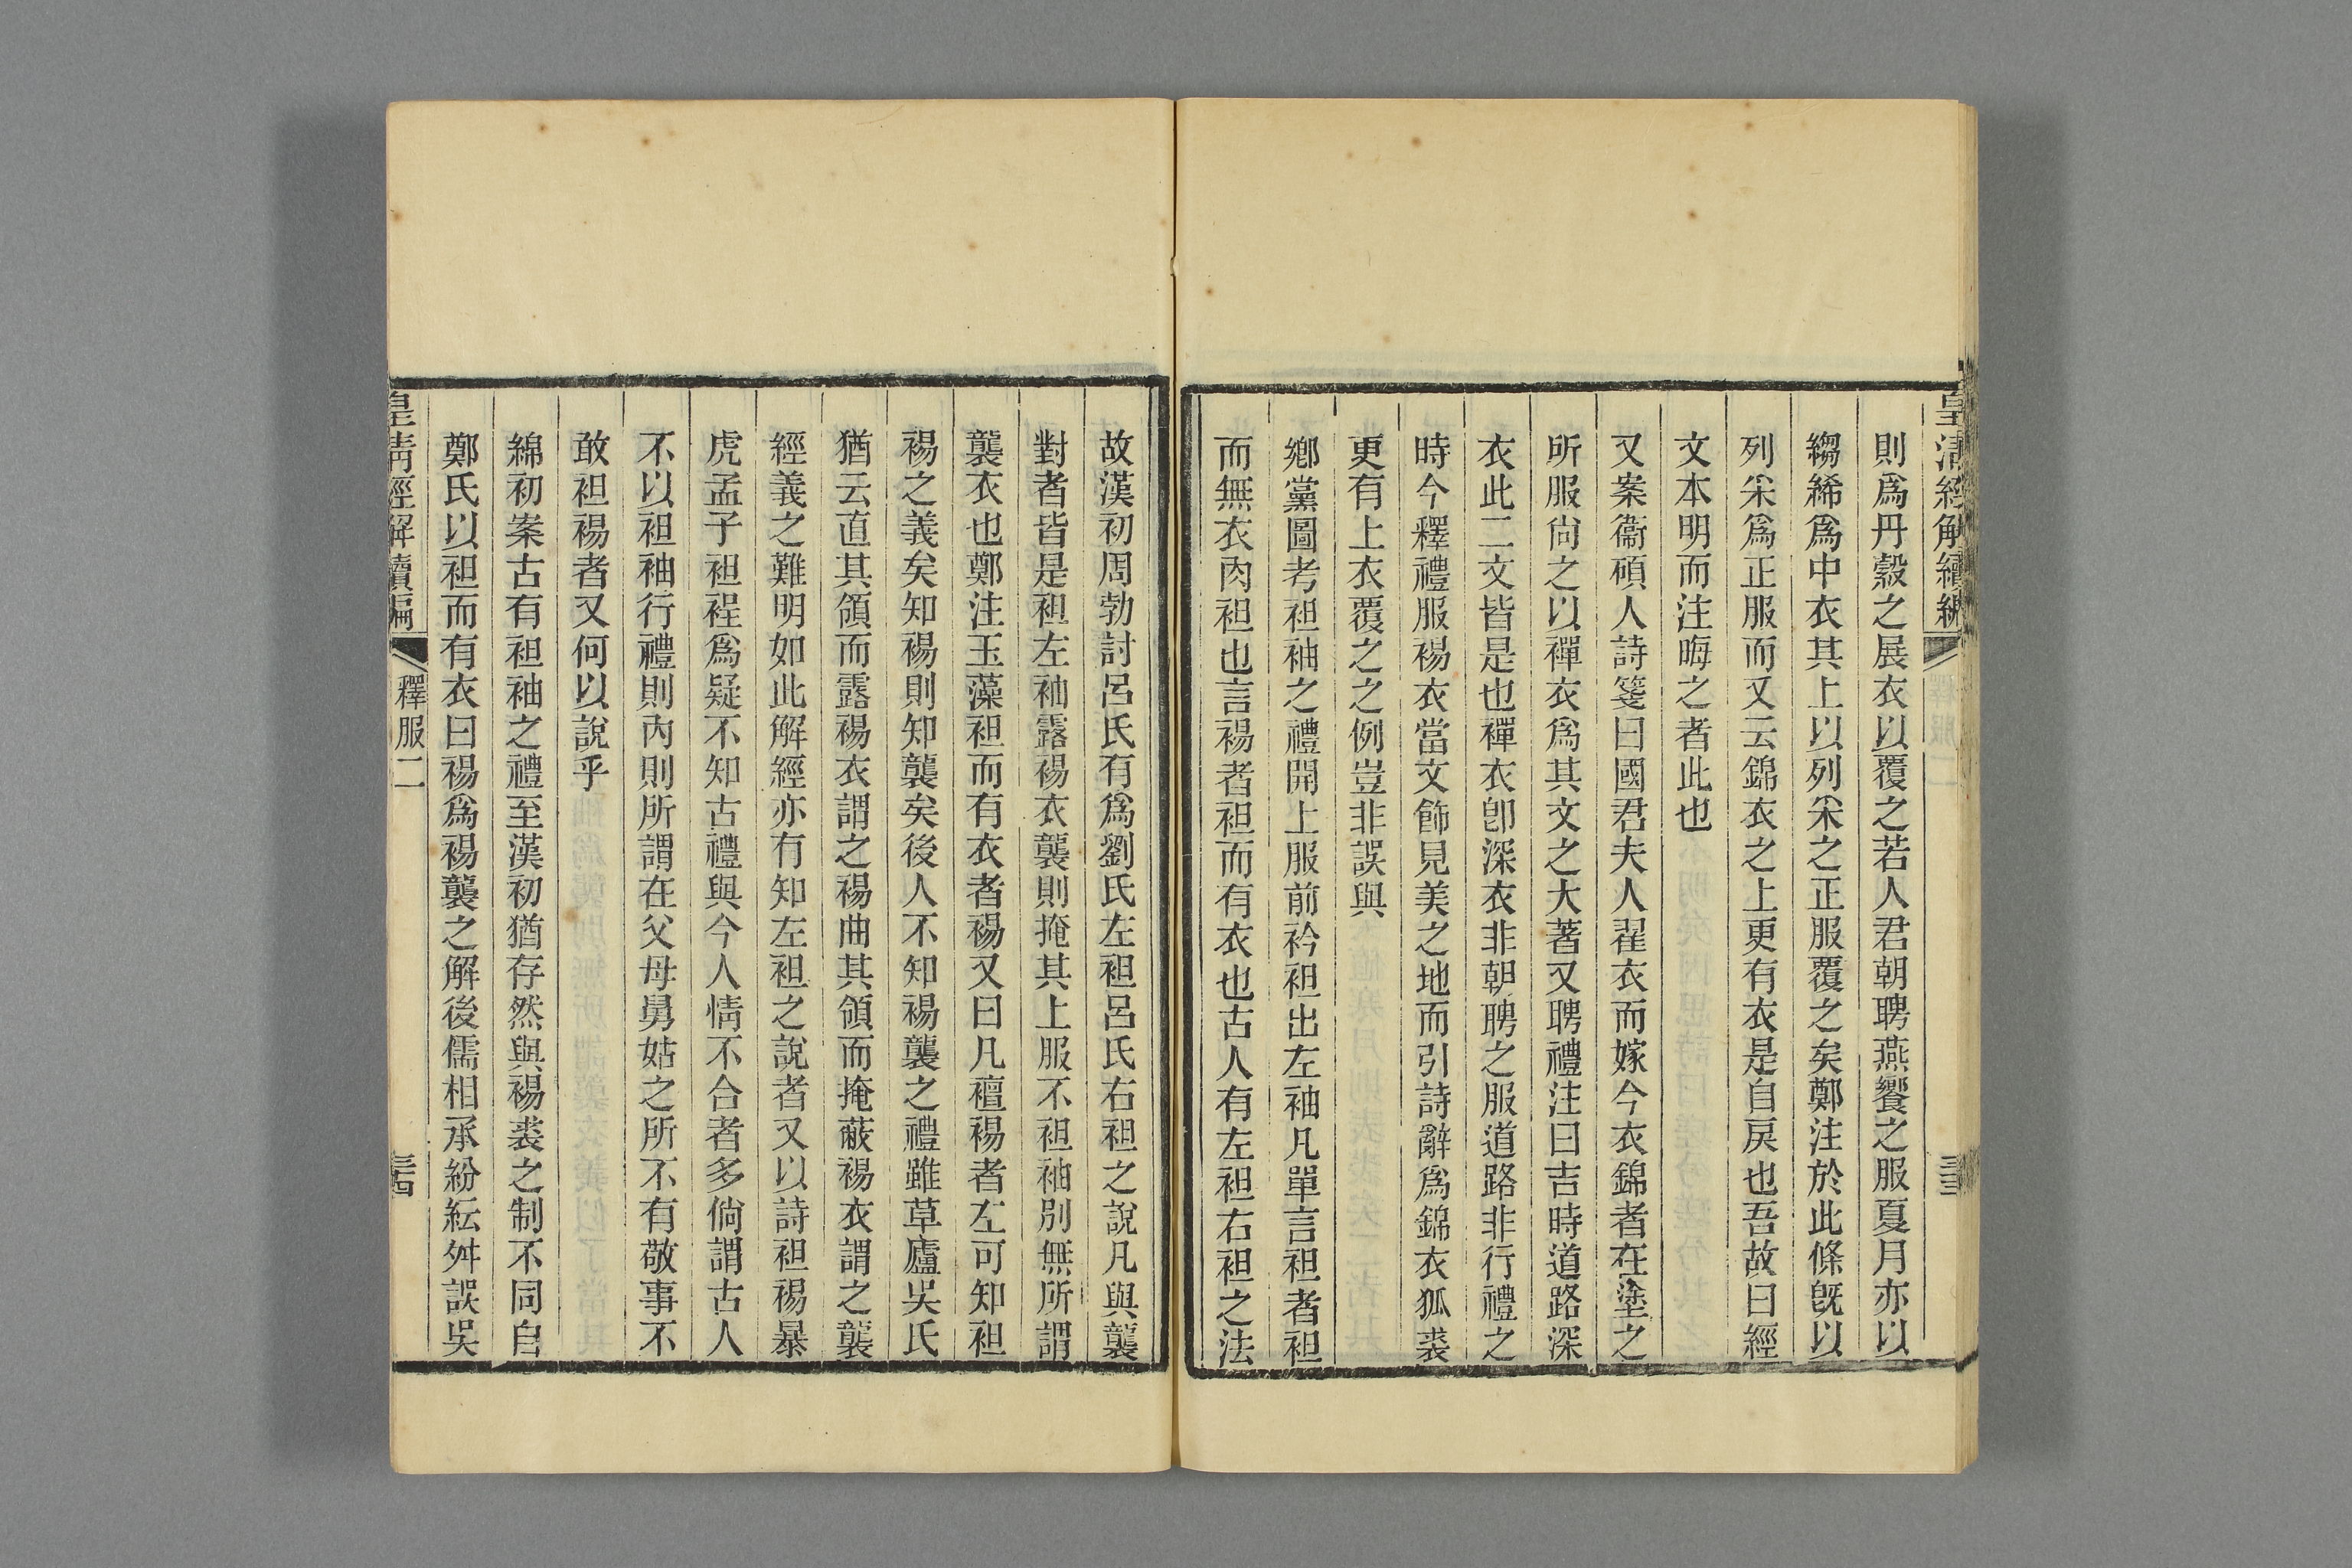 皇清經解續編
則爲丹縠之展衣以覆之若人君朝聘燕饗之服夏月亦以
縐絺爲中衣其上以列采之正服覆之矣鄭注於此條旣以
列采爲正服而又云錦衣之上更有衣是自戾也吾故曰經
文本明而注晦之者此也
又案衞碩人詩箋曰國君夫人翟衣而嫁今衣錦者在塗之
所服尙之以襌衣爲其文之大著又聘禮注曰吉時道路深
衣此二文皆是也襌衣卽深衣非朝聘之服道路非行禮之
時今釋禮服裼衣當文飾見美之地而引詩辭爲錦衣狐裘
更有上衣覆之之例豈非誤與
鄉黨圖考袒袖之禮開上服前衿袒出左袖凡單言袒者袒
而無衣肉袒也言裼者袒而有衣也古人有左袒右袒之法
故漢初周勃討呂氏有爲劉氏左袒呂氏右袒之說凡與襲
對者皆是袒左袖露裼衣襲則掩其上服不袒袖別無所謂
襲衣也鄭注玉藻袒而有衣者裼又曰凡襢裼者左可知袒
裼之義矣知裼則知襲矣後人不知裼襲之禮雖草廬吳氏
猶云直其領而露裼衣謂之裼曲其領而掩蔽裼衣謂之襲
經義之難明如此解經亦有知左袒之說者又以詩袒裼暴
虎孟子袒裎爲疑不知古禮與今人情不合者多倘謂古人
不以袒袖行禮則內則所謂在父母舅姑之所不有敬事不
敢袒裼者又何以說乎
綿初案古有袒袖之禮至漢初猶存然與裼裘之制不同自
鄭氏以袒而有衣曰裼爲裼襲之解後儒相承紛紜舛誤吳
皇清經解續編
釋服二
三四